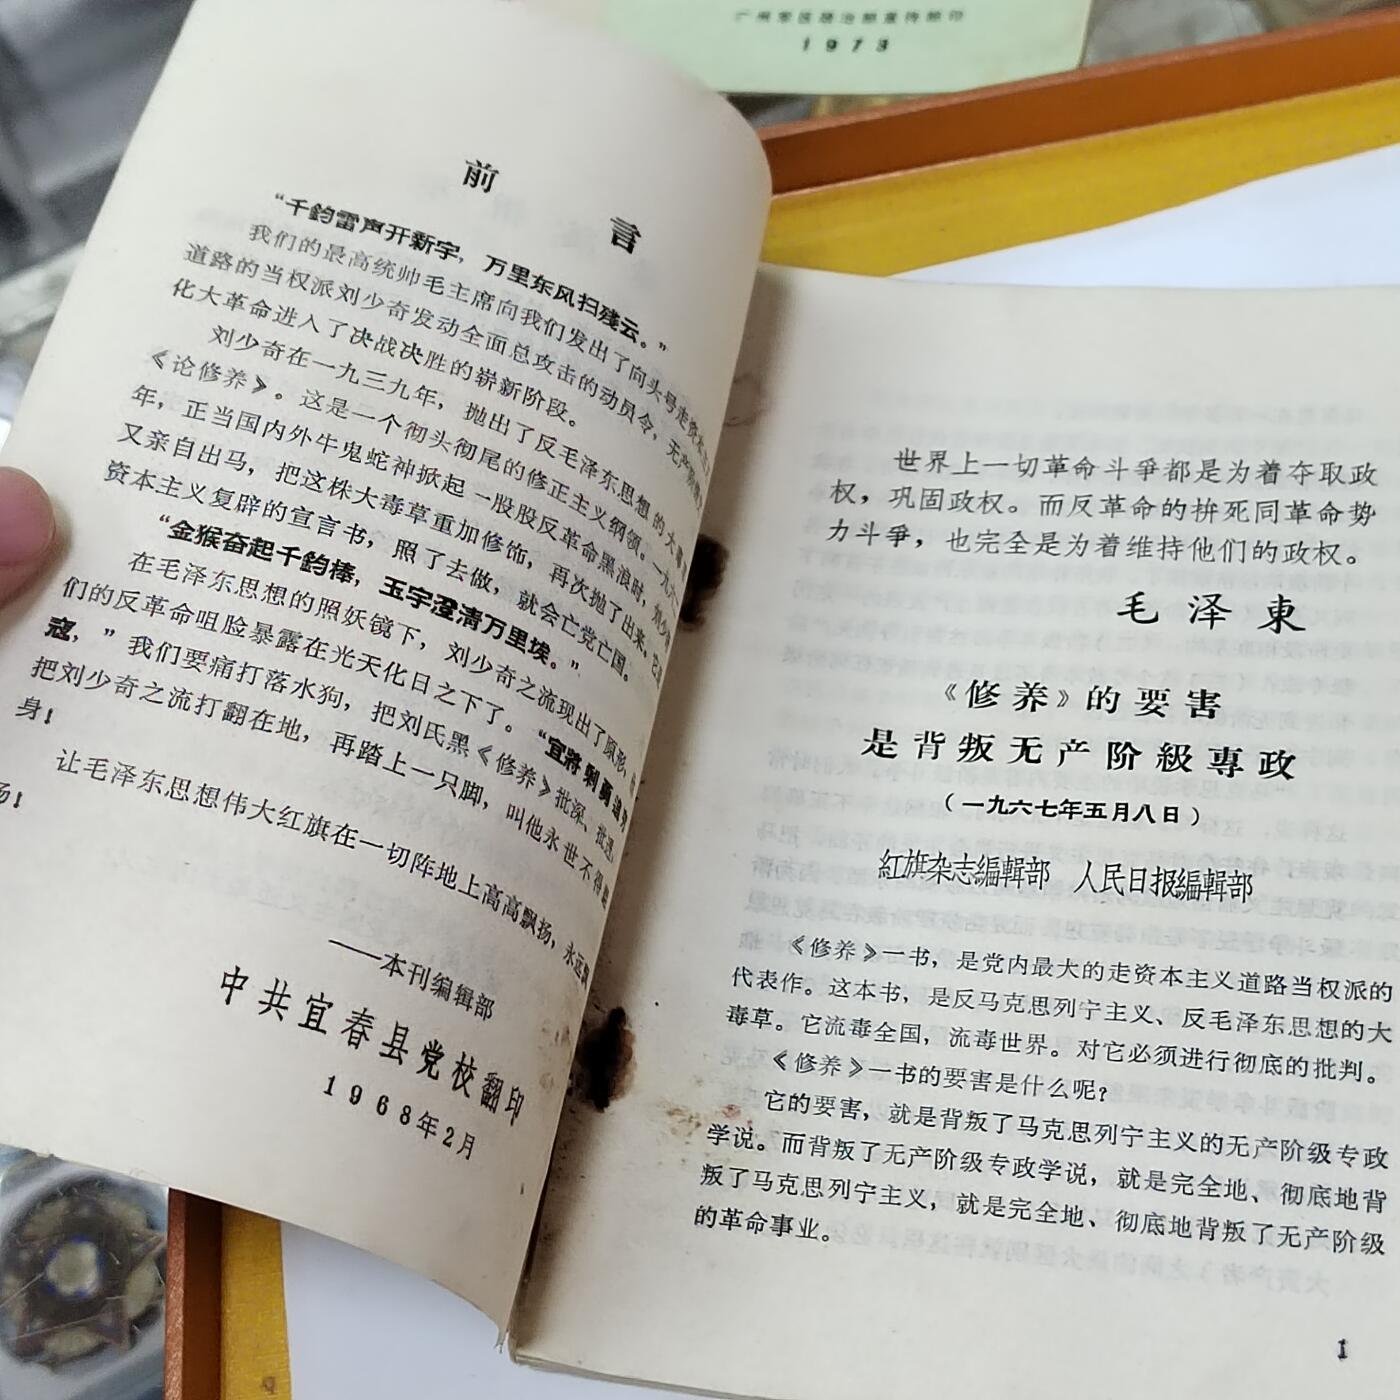 广州军区政治部宣传部印
1973
前言
“千鈞雷声开新宇，万里东风扫残云。”
我们的最高统帅毛主席向我们发出了向头号走资本主
道路的当权派刘少奇发动全面总攻击的动员令，无产阶级
化大革命进入了决战决胜的崭新阶段。
刘少奇在一九三九年，抛出了反毛泽东思想的大毒
《论修养》。这是一个彻头彻尾的修正主义纲领。一九六
年，正当国内外牛鬼蛇神掀起一股股反革命黑浪时，刘少奇
又亲自出马，把这株大毒草重加修饰，再次抛了出来。它是
资本主义复辟的宣言书，照了去做，就会亡党亡国。
“金猴奋起千鈞棒，玉宇澄清万里埃。”
在毛泽东思想的照妖镜下，刘少奇之流现出了原形，
们的反革命咀脸暴露在光天化日之下了。“宜將剩勇追穷
寇，”我们要痛打落水狗，把刘氏黑《修养》批深、批透，
把刘少奇之流打翻在地，再踏上一只脚，叫他永世不得翻
身！
让毛泽东思想伟大红旗在一切阵地上高高飘扬，永远飘
扬！
——本刊编辑部
中共宜春县党校翻印
1968年2月
世界上一切革命斗爭都是为着夺取政
权，巩固政权。而反革命的拚死同革命势
力斗爭，也完全是为着维持他们的政权。
毛泽東
《修养》的要害
是背叛无产阶級專政
（一九六七年五月八日）
紅旗杂志編輯部 人民日报編輯部
《修养》一书，是党内最大的走资本主义道路当权派的
代表作。这本书，是反马克思列宁主义、反毛泽东思想的大
毒草。它流毒全国，流毒世界。对它必须进行彻底的批判。
《修养》一书的要害是什么呢？
它的要害，就是背叛了马克思列宁主义的无产阶级专政
学说。而背叛了无产阶级专政学说，就是完全地、彻底地背
叛了马克思列宁主义，就是完全地、彻底地背叛了无产阶级
的革命事业。
1